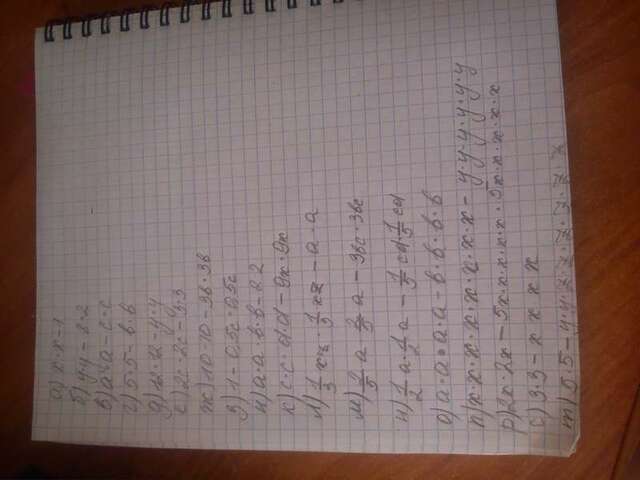 а) x·x-1
б) y·y-2·2
в) a·a-c·c
г) 5·5-b·b
е) 2·2c-3·3
ж) 10·10-3b·3b
з) 1-0,5c·0,5c
и) a·a·b·b-2·2
к) c·c·d·d-9x·9x
л) 1/3 xz·1/3 xz-a·a
м) 2/5 a·2/5 a-3bc·3bc
н) 1/2 a·1/2 a-1/5 cd·1/5 cd
о) a·a·a·a-b·b·b·b
п) x·x·x·x·x·x·x·x-y·y·y·y·y·y
р) 2x·2x-5x·x·x·x·x·5x·x·x·x·x
с) 3·3-x·x·x·x
т) 5·5-y·y